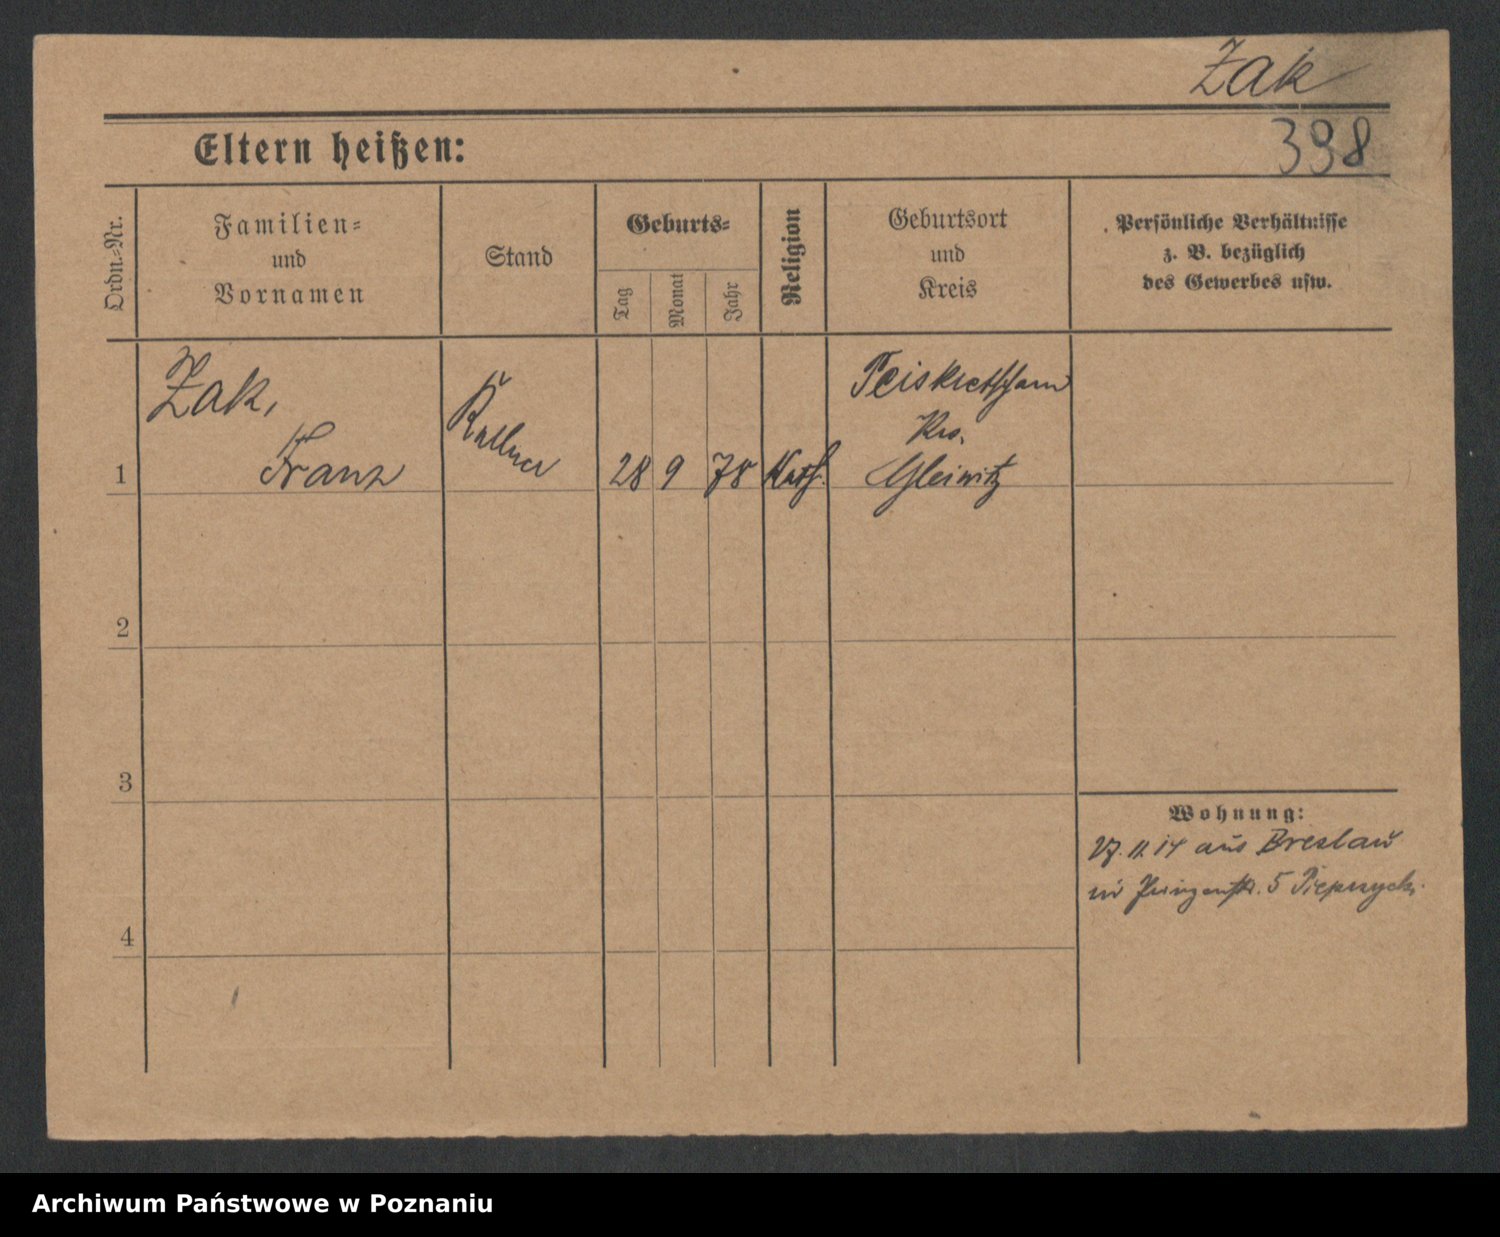 Zak
398
Eltern heißen:
Ordn.=Nr.
Familien=
und
Vornamen
Stand
Geburts=
Tag
Monat
Jahr
Religion
Geburtsort
und
Kreis
Persönliche Verhältnisse
z. B. bezüglich
des Gewerbes usw.
1
Zak,
Franz
Kellner
28
9
78
Kath.
Peiskretscham
Krs.
Gleiwitz
2
3
4
Wohnung:
27. 11. 14 aus Breslau
5
Archiwum Państwowe w Poznaniu